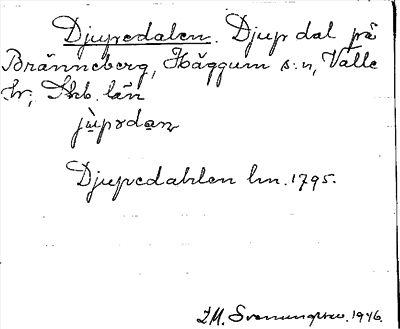 Djupedalen. Djup dal på
Bränneberg, Häggum s:n, Valle
hr; Skb. län
jùpədan
Djupedahlen lm. 1795.
I.M. Svenungsson. 1946.